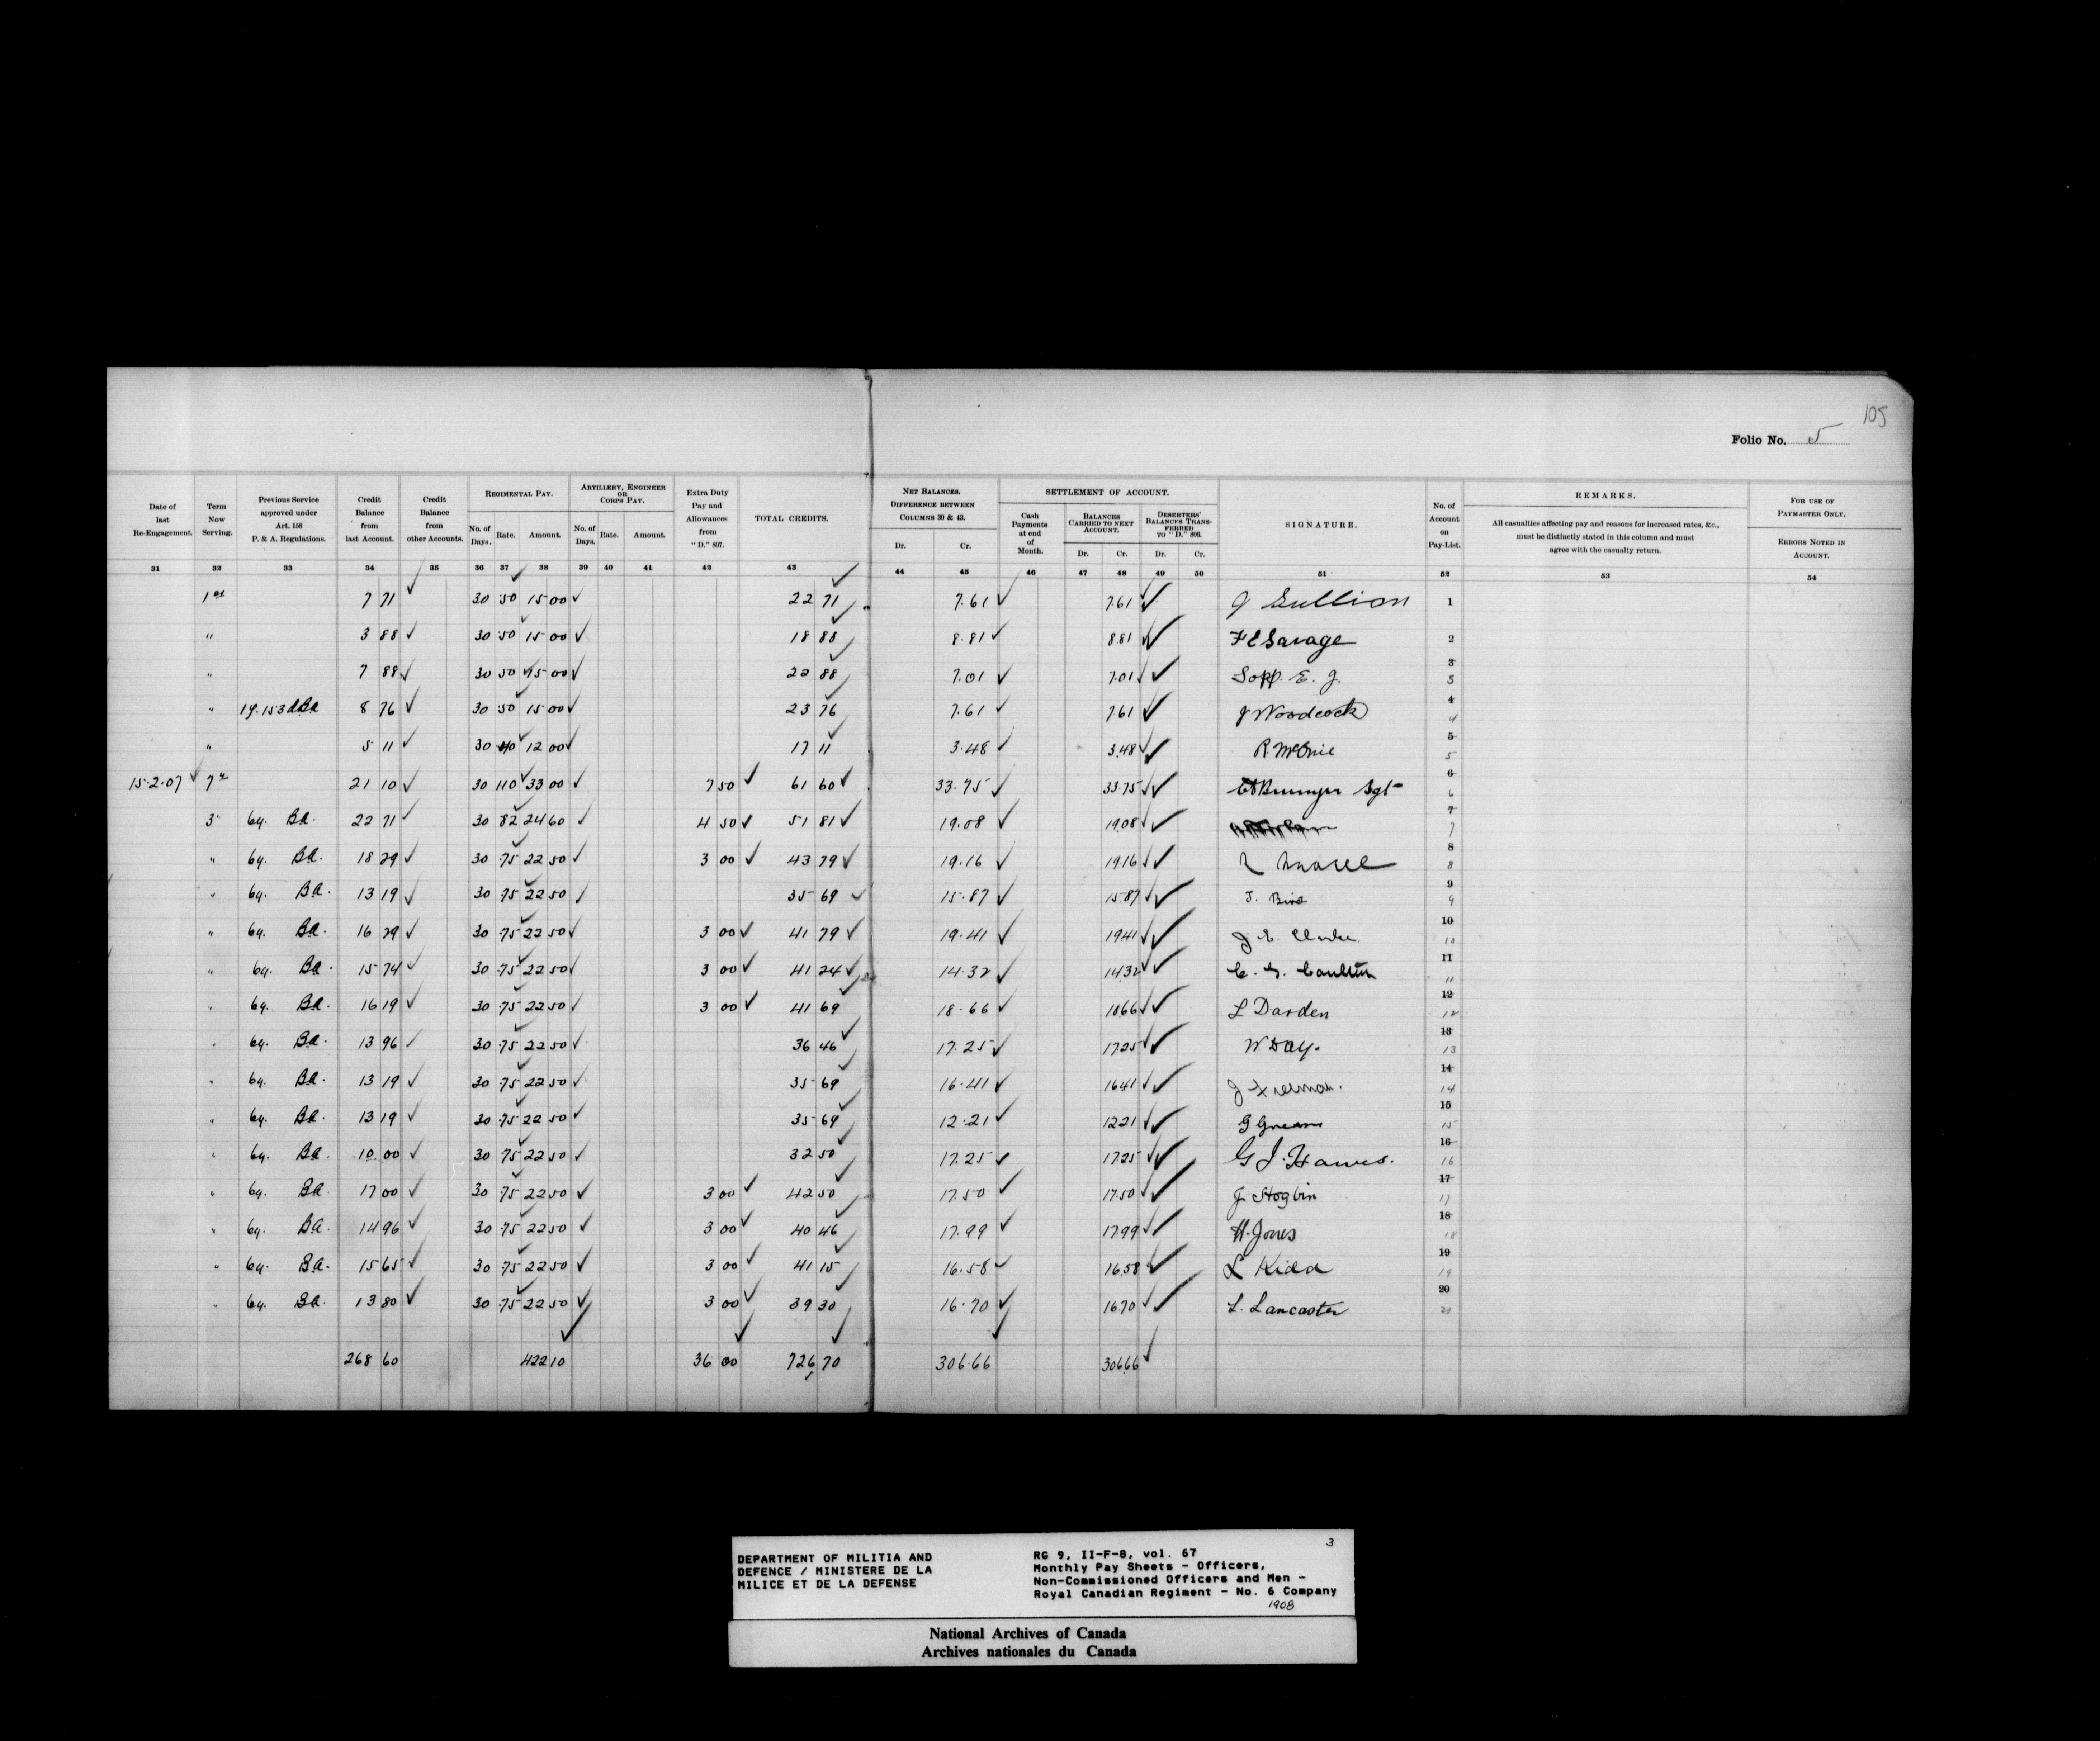 105
Folio No. 5
Date of last Re-Engagement.
Term Now Serving.
Previous Service approved under Art. 158 P. & A. Regulations.
Credit Balance from last Account.
Credit Balance from other Accounts.
REGIMENTAL PAY.
No. of Days. Rate. Amount.
ARTILLERY, ENGINEER OR CORPS PAY.
No. of Days. Rate. Amount.
Extra Duty Pay and Allowances from "D." 807.
TOTAL CREDITS.
NET BALANCES. DIFFERENCE BETWEEN COLUMNS 30 & 43.
Dr. Cr.
SETTLEMENT OF ACCOUNT.
Cash Payments at end of Month.
BALANCES CARRIED TO NEXT ACCOUNT.
Dr. Cr.
DESERTERS' BALANCES TRANSFERRED TO "D." 806.
Dr. Cr.
SIGNATURE.
No. of Account on Pay-List.
REMARKS.
All casualties affecting pay and reasons for increased rates, &c., must be distinctly stated in this column and must agree with the casualty return.
FOR USE OF PAYMASTER ONLY.
ERRORS NOTED IN ACCOUNT.
31 32 33 34 35 36 37 38 39 40 41 42 43 44 45 46 47 48 49 50 51 52 53 54
1st 7 71 30 50 15 00 22 71 7.61 7 61 J Gullion 1
" 3 88 30 50 15 00 18 88 8.81 8 81 F E Savage 2
" 7 88 30 50 15 00 22 88 7.01 7.01 Sopp. E. J. 3
" 8 76 30 50 15 00 23 76 7.61 7 61 J Woodcock 4 4
" 5 11 30 40 12 00 17 11 3.48 3.48 5 5
15.2.07 7th 21 10 30 110 33 00 7 50 61 60 33.75 33 75 Sgt 6 6
3" 6y. Ba. 22 71 30 82 24 60 4 50 51 81 19.08 19.08 7 7
" 6y. Ba. 18 29 30 .75 22 50 3 00 43 79 19.16 19 16 8 8
" 6y. Ba. 13 19 30 .75 22 50 35 69 15.87 15.87 9 9
" 6y. Ba. 16 29 30 .75 22 50 3 00 41 79 19.41 19 41 J. E. 10 10
" 6y. Ba. 15 74 30 .75 22 50 3 00 41 24 14.32 14 32 11 11
" 6y. Ba. 16 19 30 .75 22 50 3 00 41 69 18.66 18 66 L Darden 12 12
" 6y. Ba. 13 96 30 .75 22 50 36 46 17.25 17 25 W Day. 13 13
" 6y. Ba. 13 19 30 .75 22 50 35 69 16.41 16 41 14 14
" 6y. Ba. 13 19 30 .75 22 50 35 69 12.21 12 21 15 15
" 6y. Ba. 10 00 30 .75 22 50 32 50 17.25 17 25 G J. Hawes. 16 16
" 6y. Ba. 17 00 30 .75 22 50 3 00 42 50 17.50 17.50 J Hogbin 17 17
" 6y. Ba. 14 96 30 .75 22 50 3 00 40 46 17.99 17 99 H. Jones 18 18
" 6y. Ba. 15 65 30 .75 22 50 3 00 41 15 16.58 16.58 L Kidd 19 19
" 6y. Ba. 13 80 30 .75 22 50 3 00 39 30 16.70 16 70 L. Lancaster 20 20
268 60 422 10 36 00 726 70 306.66 306 66
DEPARTMENT OF MILITIA AND DEFENCE / MINISTERE DE LA MILICE ET DE LA DEFENSE
3
RG 9, II-F-8, vol. 67
Monthly Pay Sheets - Officers,
Non-Commissioned Officers and Men -
Royal Canadian Regiment - No. 6 Company
1908
National Archives of Canada
Archives nationales du Canada